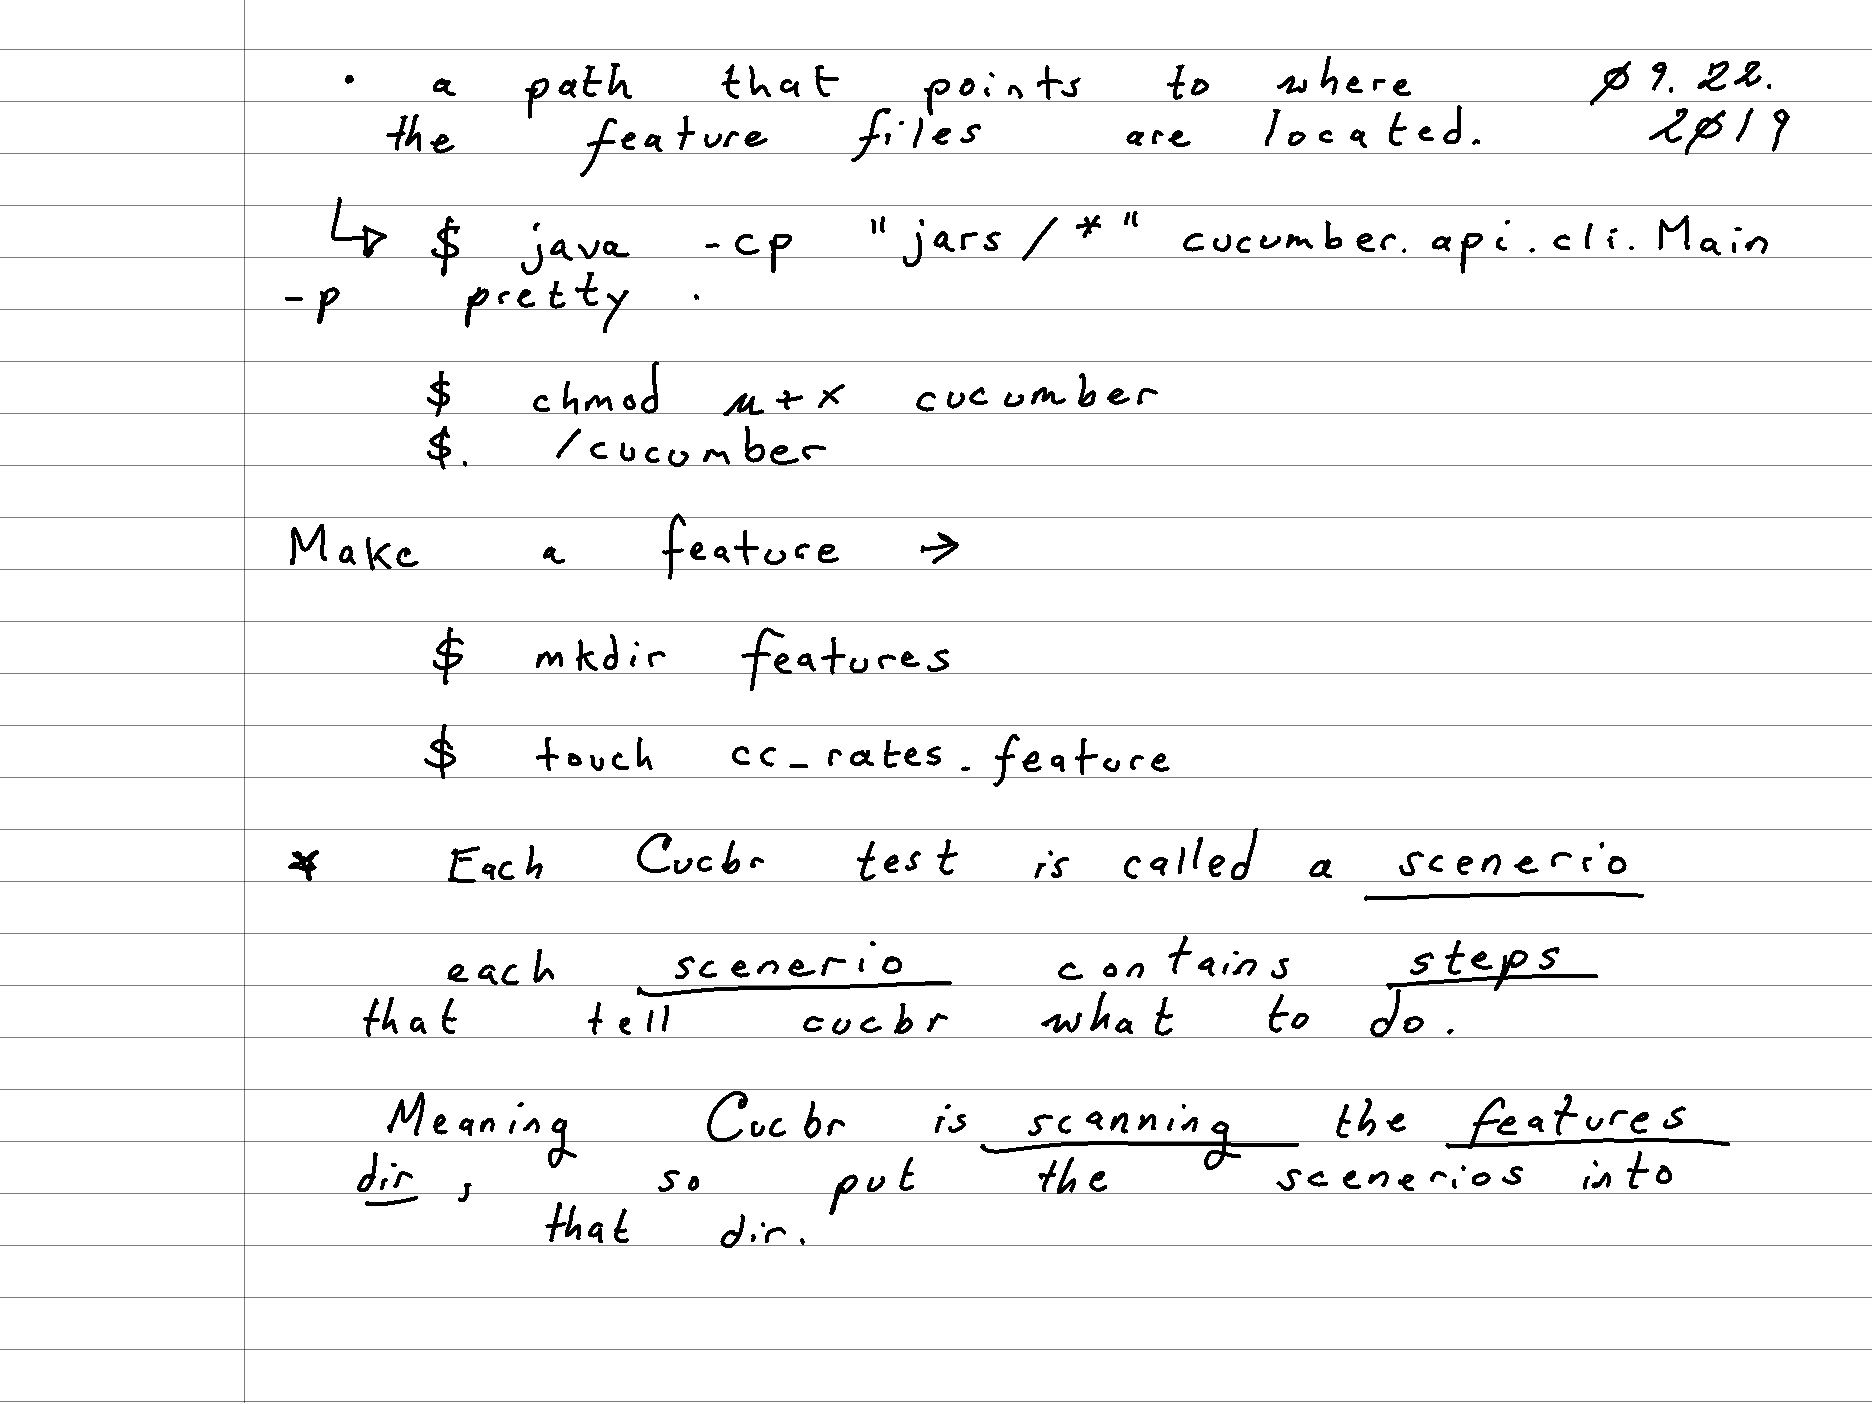 • a path that points to where Ø9.22.
the feature files are located. 2Ø19
↳ $ java -cp "jars/*" cucumber.api.cli.Main
-p pretty .
$ chmod u+x cucumber
$. /cucumber
Make a feature →
$ mkdir features
$ touch cc_rates.feature
* Each Cucbr test is called a scenerio
each scenerio contains steps
that tell cucbr what to do.
Meaning Cucbr is scanning the features
dir, so put the scenerios into
that dir.